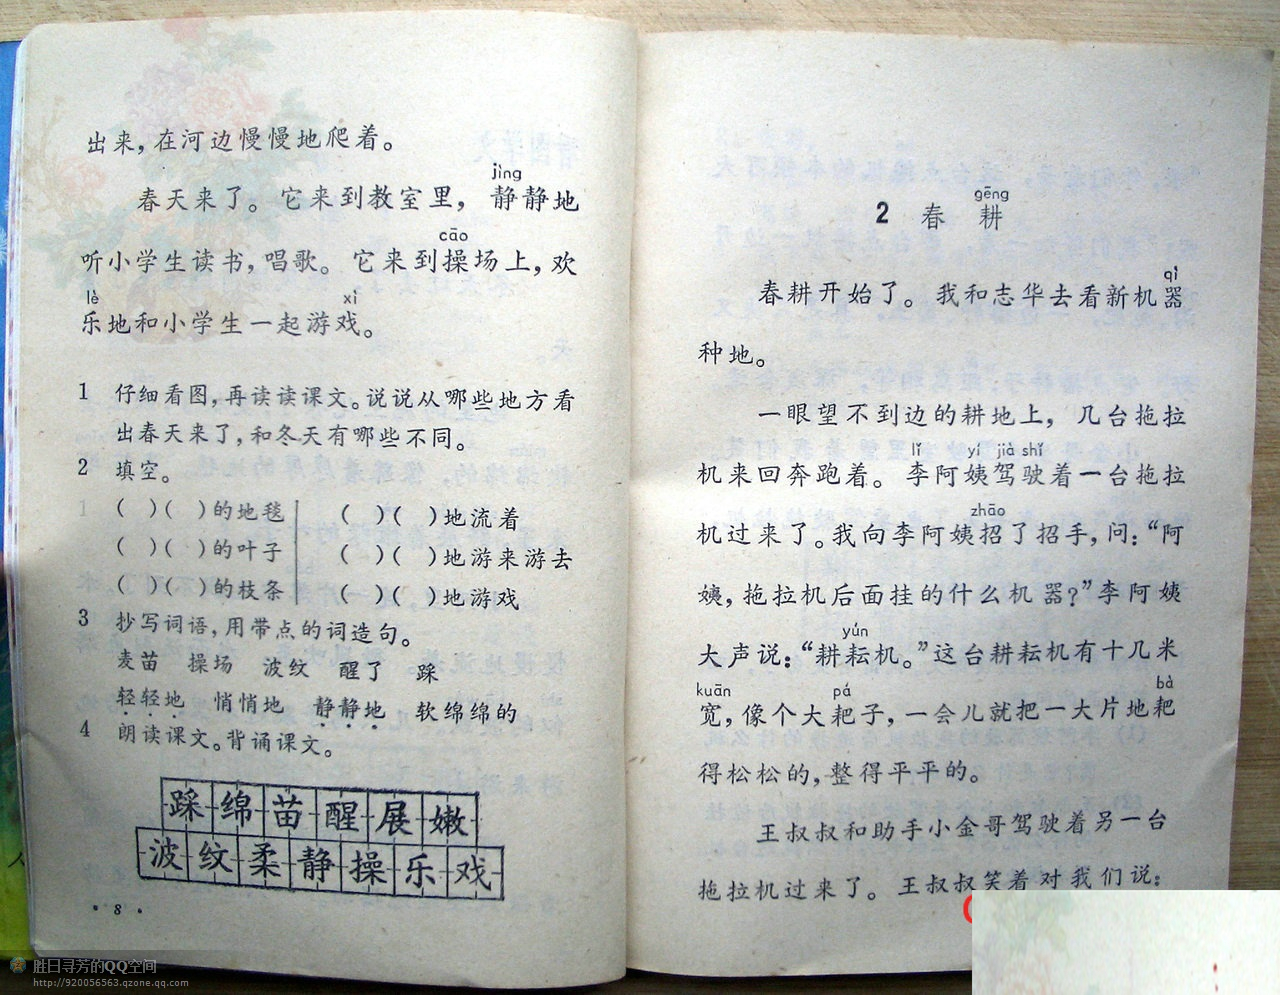 出来，在河边慢慢地爬着。
jìng
春天来了。它来到教室里，静静地
cāo
听小学生读书，唱歌。它来到操场上，欢
lè xì
乐地和小学生一起游戏。
1 仔细看图，再读读课文。说说从哪些地方看
出春天来了，和冬天有哪些不同。
2 填空。
（ ）（ ）的地毯 （ ）（ ）地流着
（ ）（ ）的叶子 （ ）（ ）地游来游去
（ ）（ ）的枝条 （ ）（ ）地游戏
3 抄写词语，用带点的词造句。
麦苗 操场 波纹 醒了 踩
轻轻地 悄悄地 静静地 软绵绵的
4 朗读课文。背诵课文。
踩绵苗醒展嫩
波纹柔静操乐戏
·8·
gēng
2 春 耕
qì
春耕开始了。我和志华去看新机器
种地。
一眼望不到边的耕地上，几台拖拉
lǐ yí jià shǐ
机来回奔跑着。李阿姨驾驶着一台拖拉
zhāo
机过来了。我向李阿姨招了招手，问：“阿
姨，拖拉机后面挂的什么机器？”李阿姨
yún
大声说：“耕耘机。”这台耕耘机有十几米
kuān pá bà
宽，像个大耙子，一会儿就把一大片地耙
得松松的，整得平平的。
王叔叔和助手小金哥驾驶着另一台
拖拉机过来了。王叔叔笑着对我们说：
胜日寻芳的QQ空间
http://920056563.qzone.qq.com